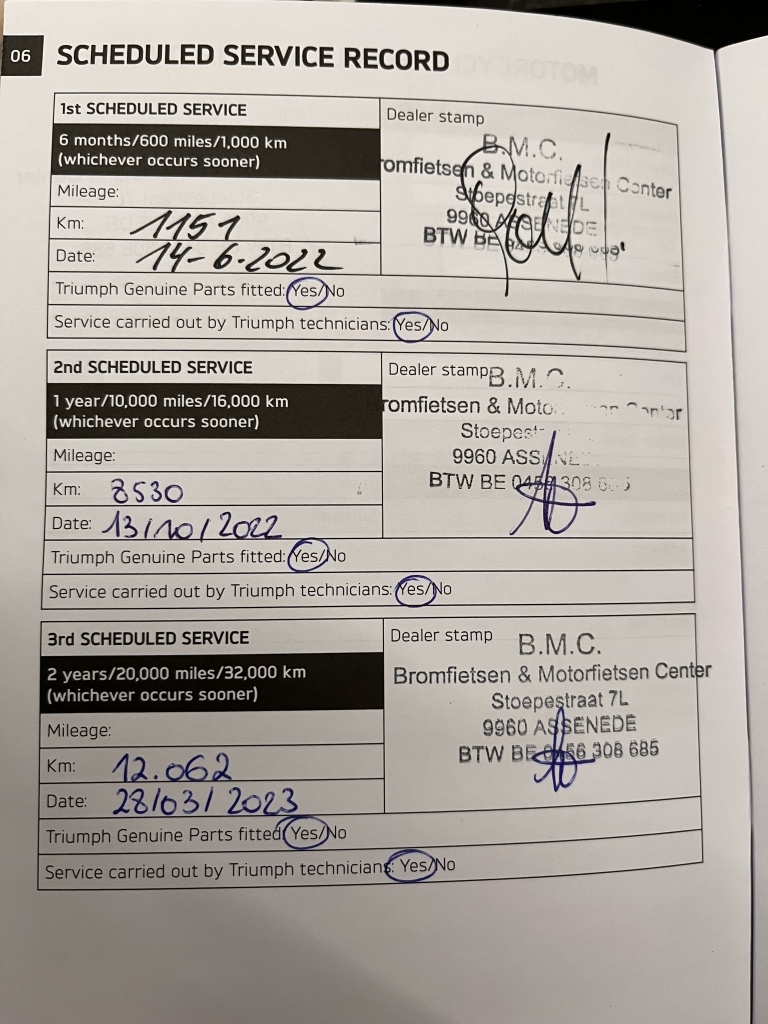 06
SCHEDULED SERVICE RECORD
1st SCHEDULED SERVICE
6 months/600 miles/1,000 km
(whichever occurs sooner)
Mileage:
Km: 1151
Date: 14-6-2022
Dealer stamp
B.M.C.
romfietsen & Motorfietsen Center
Stoepestraat 7L
9960 ASSENEDE
BTW BE
Triumph Genuine Parts fitted: Yes/No
Service carried out by Triumph technicians: Yes/No
2nd SCHEDULED SERVICE
1 year/10,000 miles/16,000 km
(whichever occurs sooner)
Mileage:
Km: 8530
Date: 13/10/2022
Dealer stamp
B.M.C.
romfietsen & Moto
Stoepest
9960 ASS
BTW BE 308
Triumph Genuine Parts fitted: Yes/No
Service carried out by Triumph technicians: Yes/No
3rd SCHEDULED SERVICE
2 years/20,000 miles/32,000 km
(whichever occurs sooner)
Mileage:
Km: 12.062
Date: 28/03/2023
Dealer stamp
B.M.C.
Bromfietsen & Motorfietsen Center
Stoepestraat 7L
9960 ASSENEDE
BTW BE 0456 308 685
Triumph Genuine Parts fitted: Yes/No
Service carried out by Triumph technicians: Yes/No